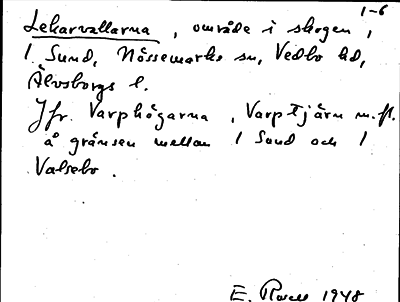 1-6
Lekarvallarna, område i skogen,
1 Sund, Nössemarks sn, Vedbo hd,
Älvsborgs l.
Jfr. Varphögarna, Varptjärn m.fl.
å gränsen mellan 1 Sund och 1
Valsebo.
E. 1948